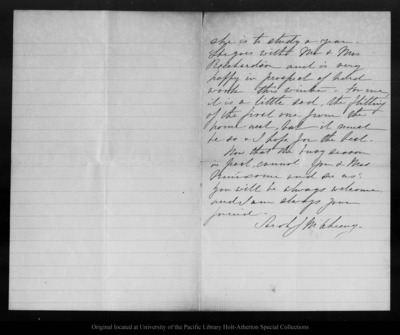 she is to study a year.
She goes with Mr & Mrs
Richardson and is very
happy in prospect of hard
work this winter. For me
it is a little sad, the flitting
of the first one from the
home nest, but it must
be so & I hope for the best.
Now that the busy season
is past, cannot you & Mrs
Muir come and see us?
You will be always welcome
and I am always your
friend.
Sarah J McChesney.
Original located at University of the Pacific Library Holt-Atherton Special Collections